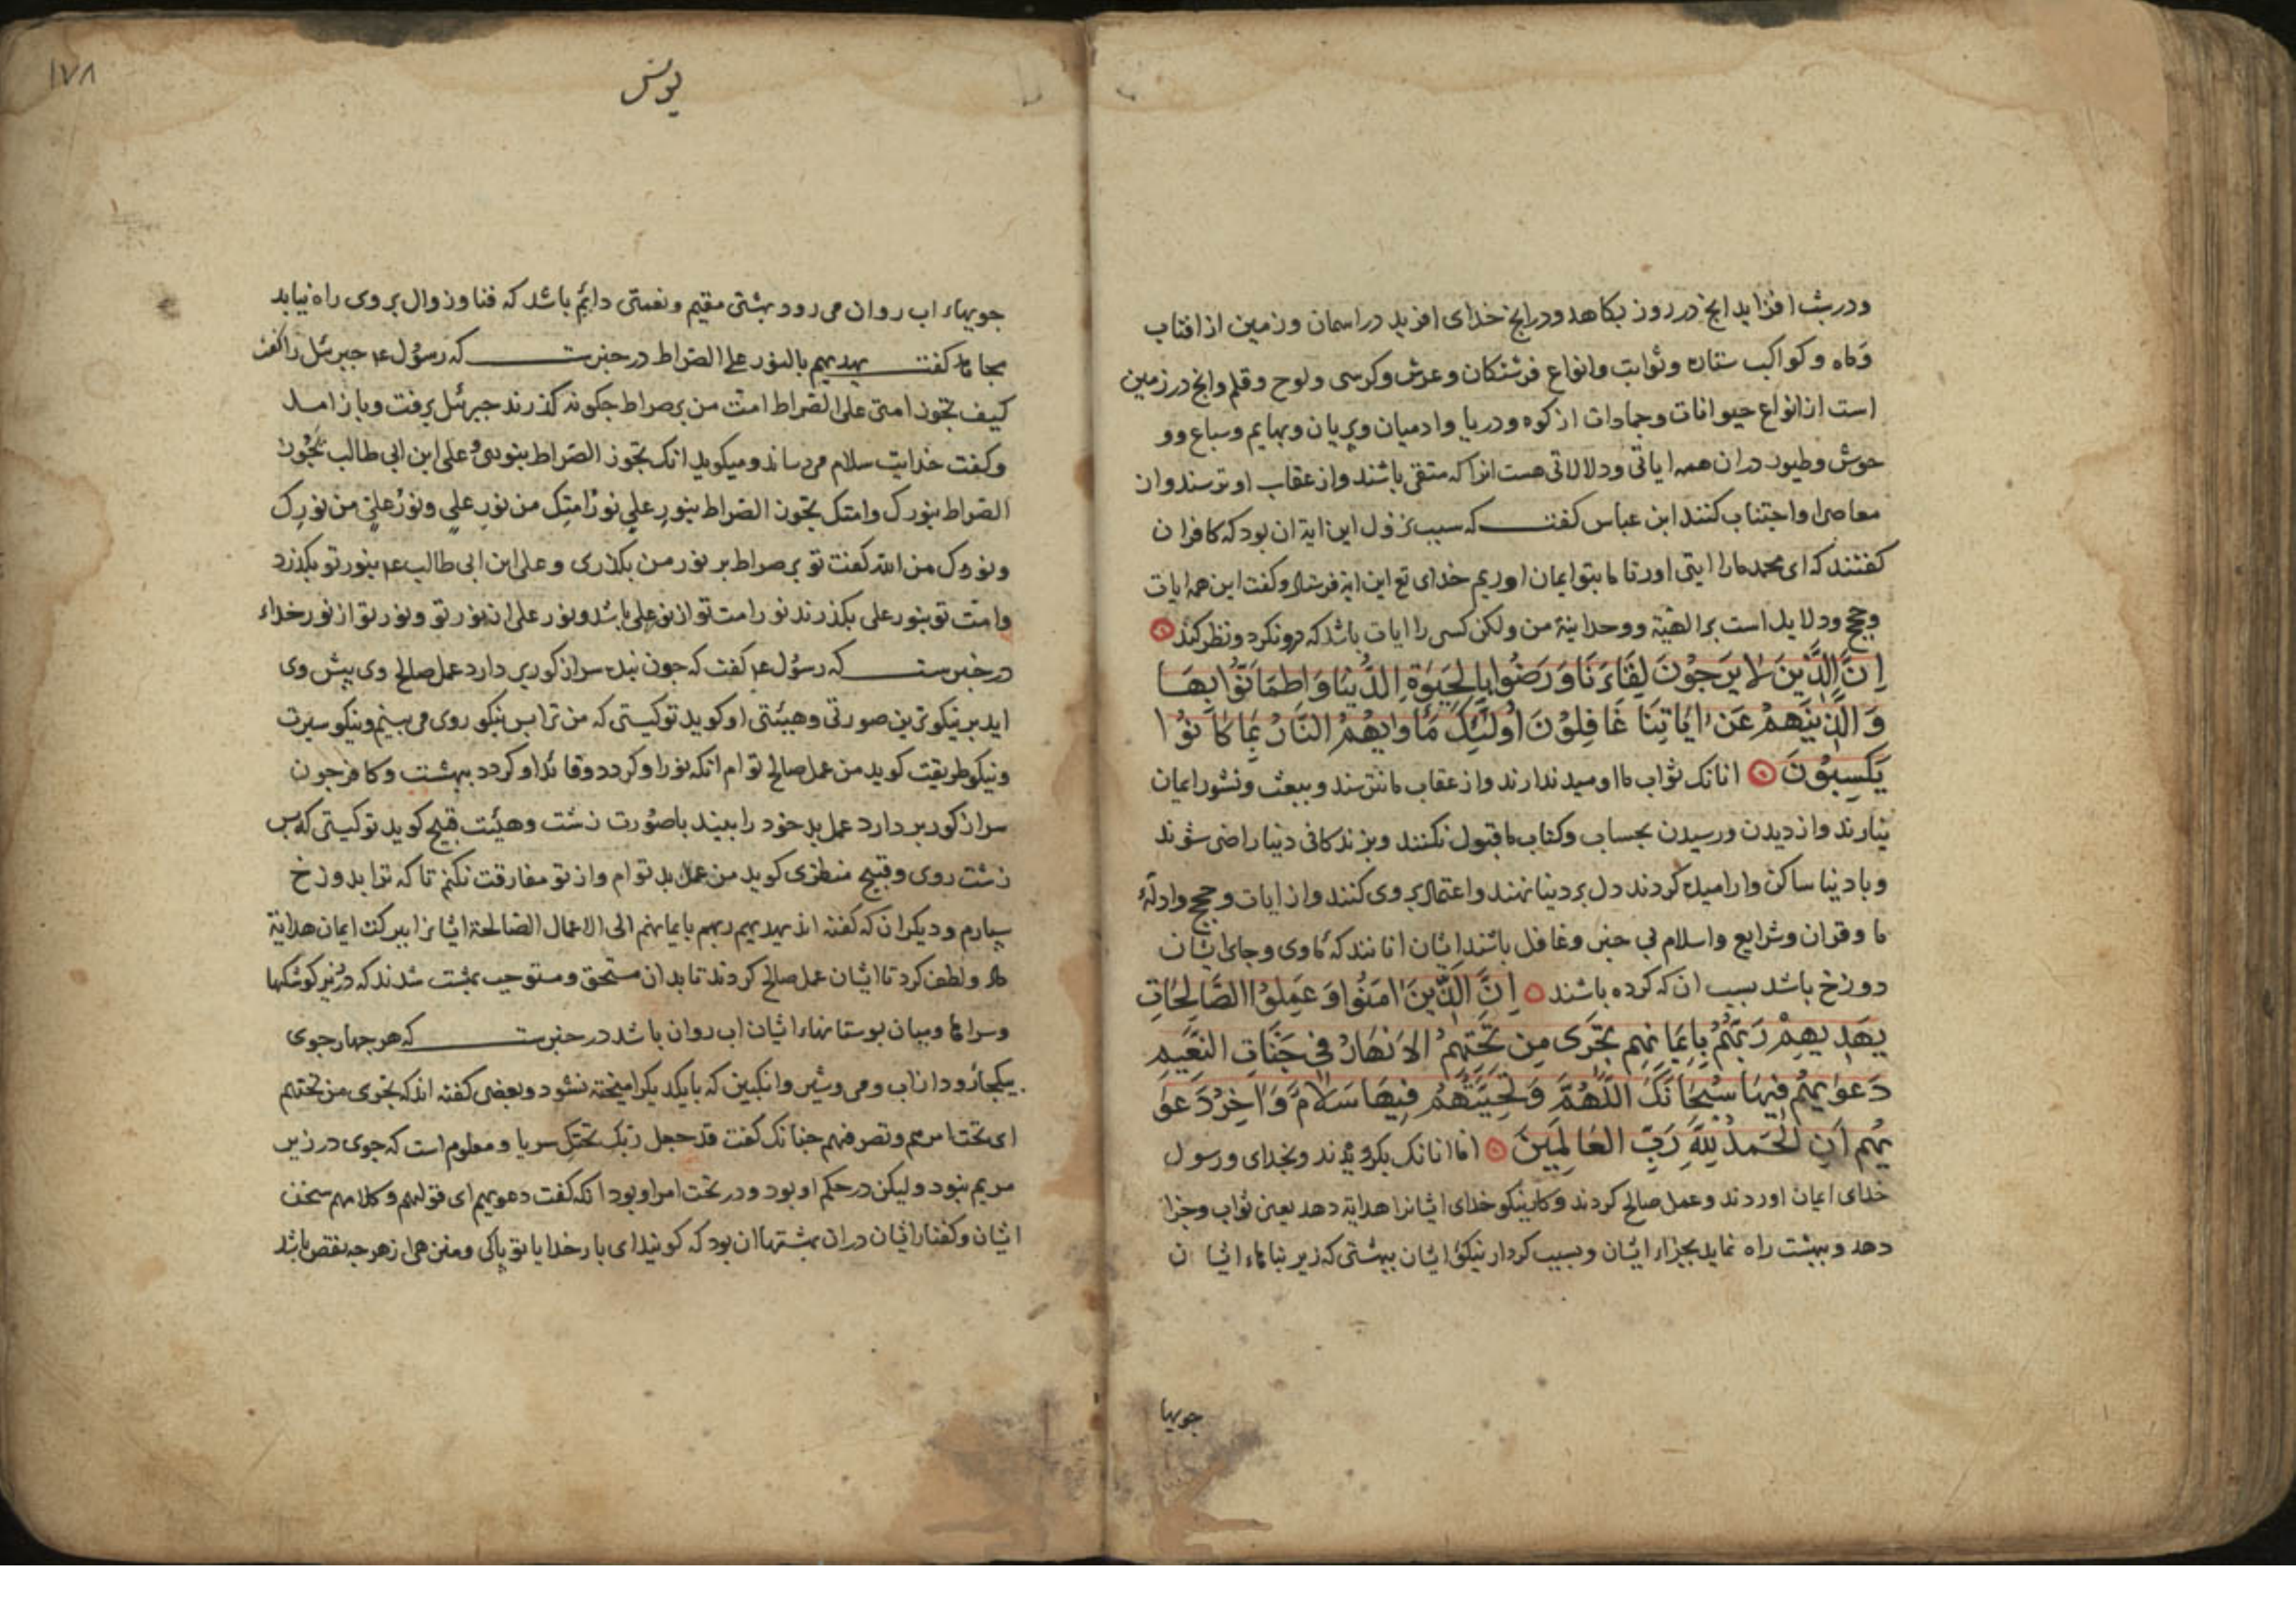 ودر شب افزاید انج در روز بکاهد ودرانج خدای افرید در اسمان وزمین از افتاب
وماه وکواکب ستاره وثوابت وانواع فرشتکان وعرش وکرسی ولوح وقلم وانج در زمین
است از انواع حیوانات وجمادات از کوه ودریا وادمیان وپریان وبهایم وسباع وو
حوش وطیور در ان همه ایاتی ودلالاتی هست انرا که متقی باشند واز عقاب او ترسند واز
معاصی او اجتناب کنند ابن عباس کفت که سبب نزول این ایة ان بود که کافران
کفتند که ای محمد مارا ایتی اور تا ما بتو ایمان اوریم خدای تع این ایة فرستاد وکفت این همه ایات
وحجج ودلایل است بر الهیة ووحدانیة من ولکن کسی را ایات باشد که درونکرد ونظر کند
اِنَّ الَّذِینَ لا یَرجُوْنَ لِقَاءَنَا وَرَضُوا بِالحَیٰوةِ الدُّنیَا وَاطمَاَنّوُا بِهَا
وَالَّذِینَ هُمْ عَن اٰیَاتِنَا غَافِلِوُنَ اُولٰئِکَ مَأوٰیهُمُ النَّارُ بِمَا کَانوُا
یَکسِبوُنَ انانک ثواب ما اومید ندارند واز عقاب ما نترسند وببعث ونشور ایمان
نیارند واز دیدن ورسیدن بحساب وکتاب ما قبول نکنند وبزندکانی دنیا راضی شوند
وبا دنیا ساکن وارامیده کردند دل بر دنیا نهند واعتماد بر وی کنند واز ایات وحجج وادلهٔ
ما وقران وشرایع واسلام بی خبر وغافل باشند ایشان انانند که ماوی وجای ایشان
دوزخ باشد بسبب ان که کرده باشند اِنَّ الَّذِینَ اٰمَنُوا وَعَمِلوُا الصَّالِحَاتِ
یَهْدِیهِمْ رَبُّهُمْ بِاِیمَانِهِم تَجرِی مِن تَحتِهِمُ الاَنهَارُ فِی جَنَّاتِ النَّعِیمِ
دَعوٰیهُم فِیهَا سُبحَانَکَ اللَّهُمَّ وَتَحِیَّتُهُمْ فِیهَا سَلامٌ وَاٰخِرُ دَعوٰ
یٰهُم اَنِ الحَمدُ لِلّٰهِ رَبِّ العَالَمِینَ اما انانک بکرویدند وبخدای ورسول
خدای ایمان اوردند وعمل صالح کردند وکار نیکو خدای ایشانرا هدایة دهد یعنی ثواب وجزا
دهد وببهشت راه نماید بجزاء ایشان وبسبب کردار نیکو ایشان ببهشتی که زیر بناهاء ایشان
جویها
۱۷۸
یونس
جویهاء اب روان می رود بهشتی مقیم ونعمتی دایم باشد که فنا وزوال بر وی راه نیابد
مجاهد کفت یهدیهم بالنور علی الصراط در خبرست که رسول ع م جبرئل را کفت
کیف تجوز امتی علی الصراط امت من بر صراط چکونه کذرند جبرئل برفت وباز امد
وکفت خدایت سلام می رساند ومیکوید انک تجوز الصراط بنوری وعلی ابن ابی طالب یجوز
الصراط بنورک وامتک تجوز الصراط بنور علی نور امتک من نور علی ونور علی من نورک
ونورک من الله کفت تو بر صراط بر نور من بکذری وعلی ابن ابی طالب ع م بنور تو بکذرد
وامت تو بنور علی بکذرند نور امت تو از نور علی باشد ونور علی از نور تو ونور تو از نور خداء
در خبرست که رسول ع م کفت که چون بنده سر از کور بر دارد عمل صالح وی پیش وی
اید بر نیکوترین صورتی وهیئتی او کوید تو کیستی که من ترا بس نیکو روی می بینم ونیکو سیرت
ونیکو طریقت کوید من عمل صالح تو ام انکه نور او کردد وقائد او کردد ببهشت وکافر چون
سر از کور بر دارد عمل بد خود را بیند با صورت زشت وهیئت قبیح کوید تو کیستی که بس
زشت روی وقبیح منظری کوید من عمل بد تو ام واز تو مفارقت نکنم تا که ترا بدوزخ
سپارم ودیکران که کفته اند یهدیهم ربهم بایمانهم الی الاعمال الصالحة ایشانرا ببرکت ایمان هدایة
داد ولطف کرد تا ایشان عمل صالح کردند تا بدان مستحق ومستوجب بهشت شدند که در زیر کوشکها
وسراها ومیان بوستانهاء ایشان اب روان باشد در خبرست که هر چهار جوی
بیکجا رود از اب ومی وشیر وانکبین که با یکدیکر امیخته نشود وبعضی کفته اند که تجری من تحتهم
ای تحت امرهم وتصرفهم چنانک کفت قد جعل ربک تحتک سریا ومعلوم است که جوی در زیر
مریم نبود ولیکن در حکم او بود ودر تحت امر او بود انکه کفت دعویهم ای قولهم وکلامهم سخن
ایشان وکفتار ایشان در ان بهشتها ان بود که کویند ای بار خدایا تو پاکی ومنزهی از هرچه نقص باشد